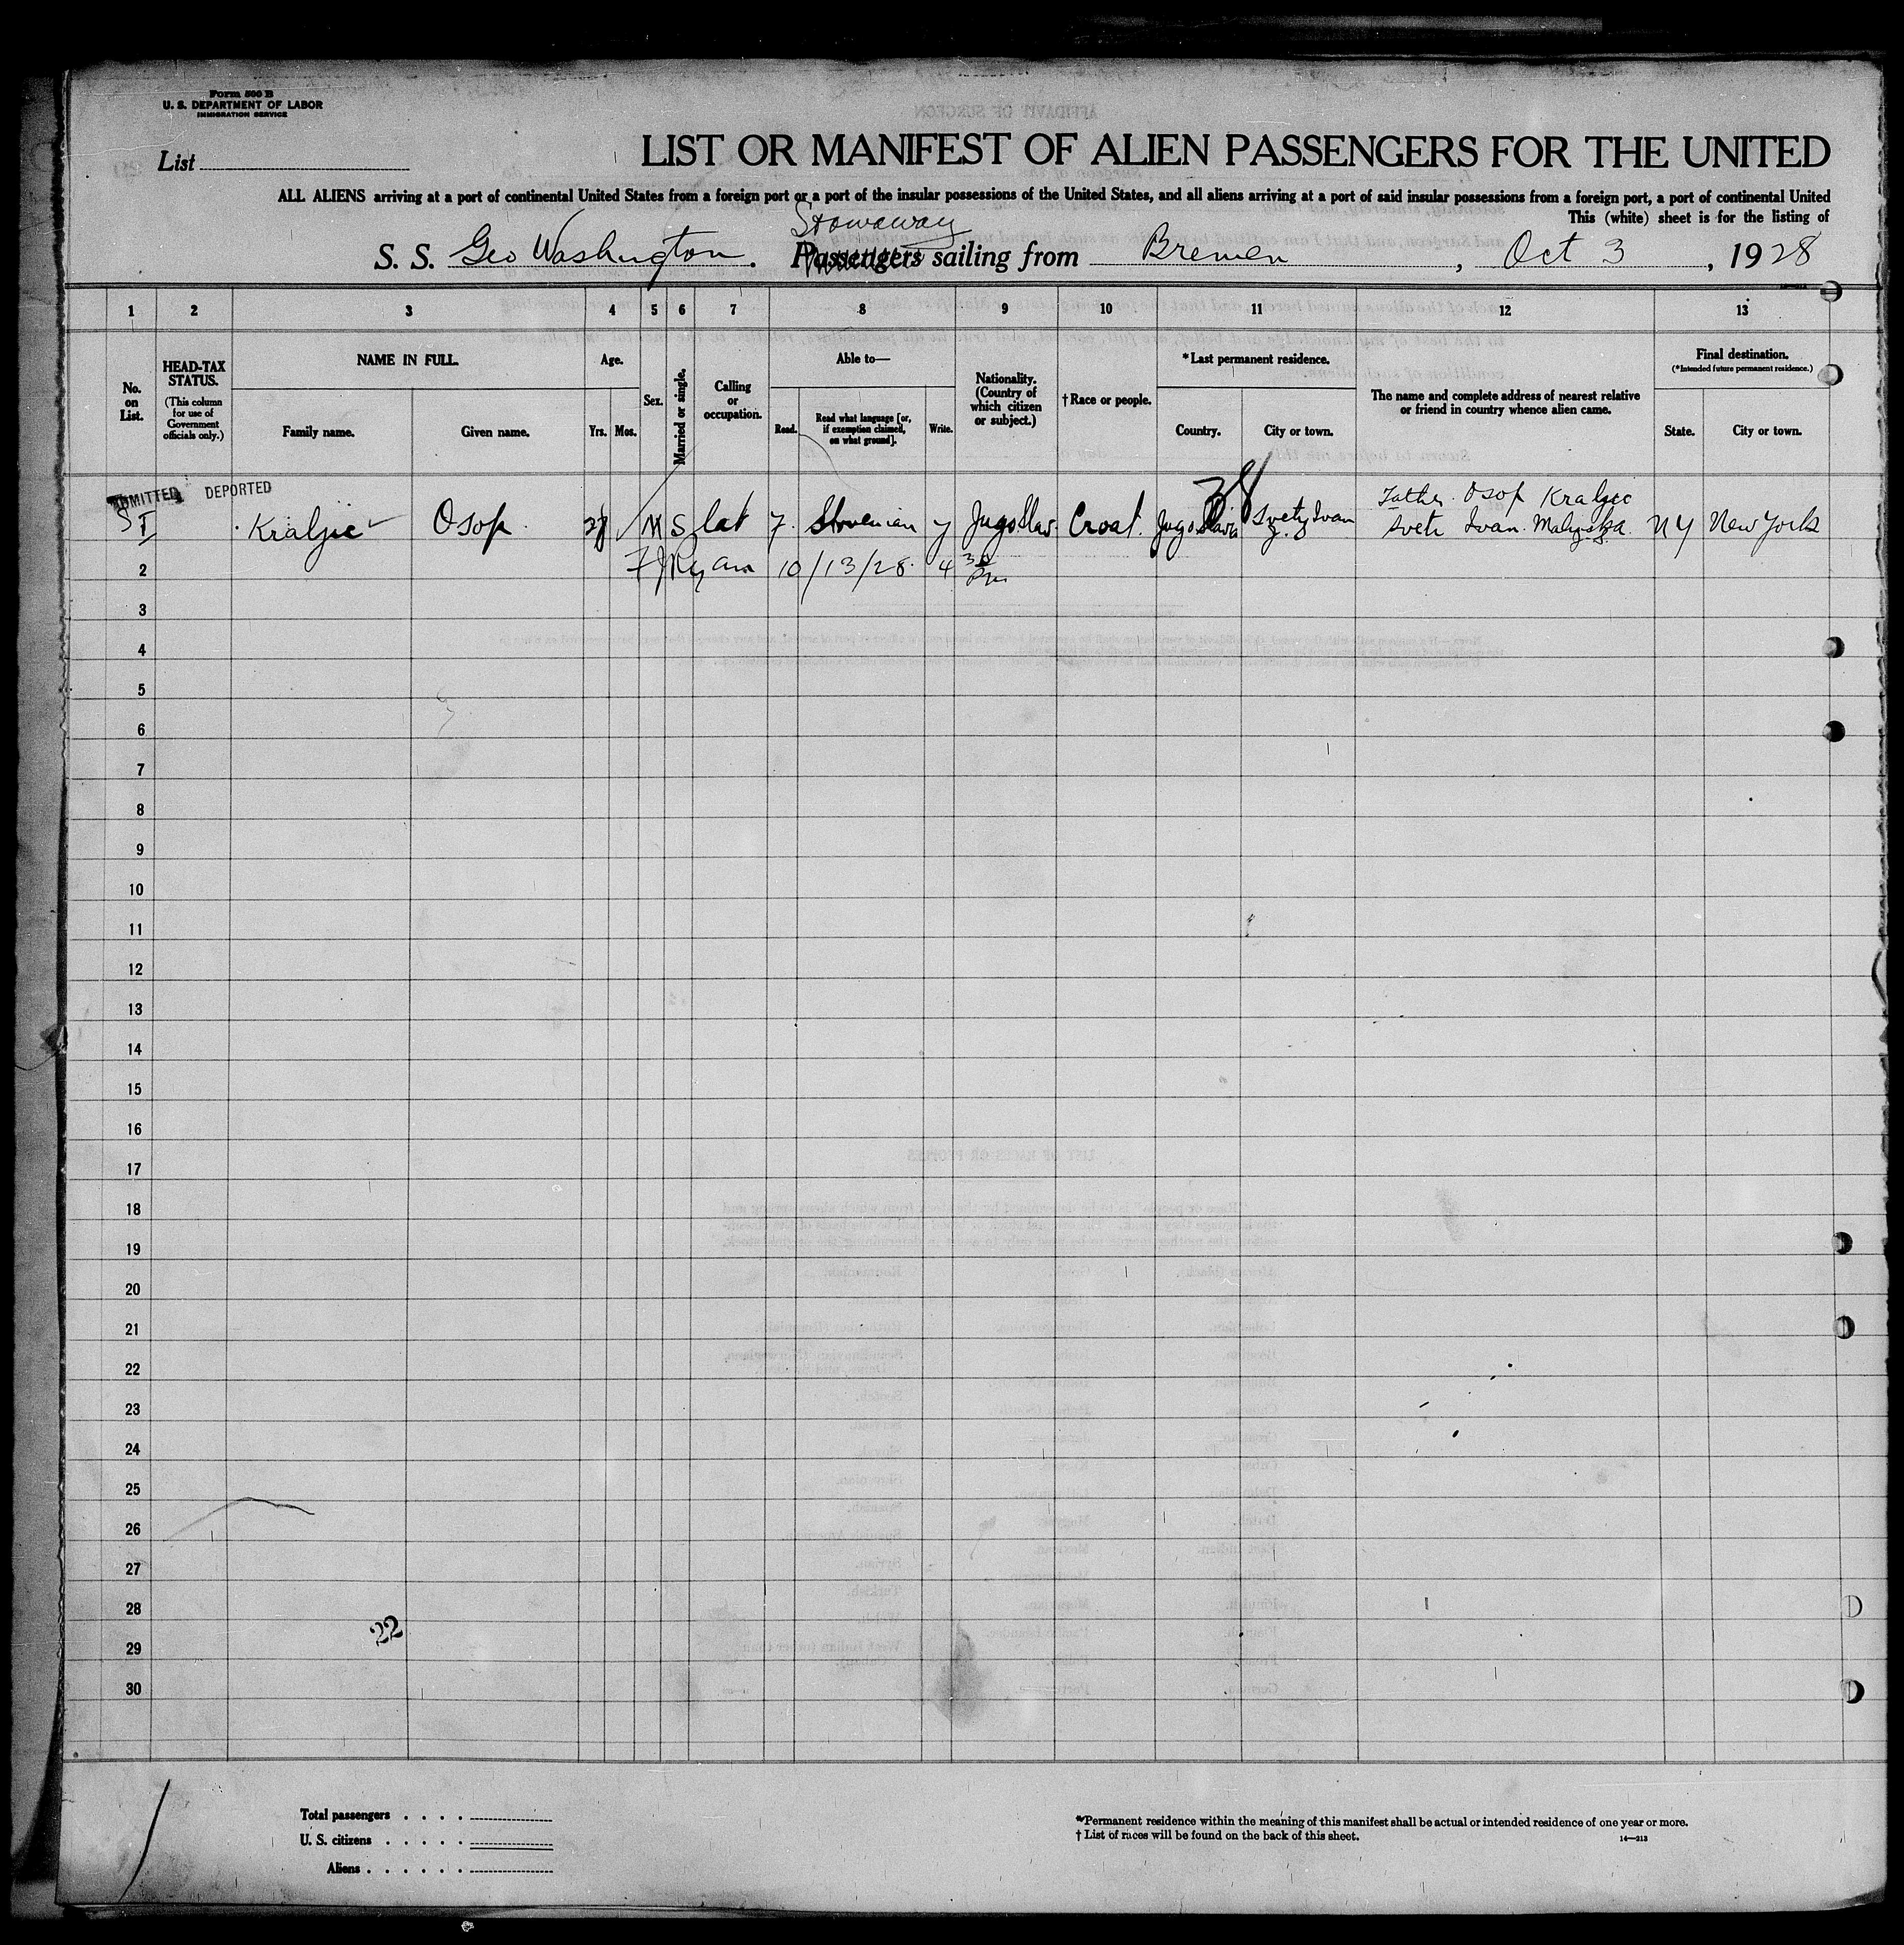 Form 500 B
U. S. DEPARTMENT OF LABOR
IMMIGRATION SERVICE
List
LIST OR MANIFEST OF ALIEN PASSENGERS FOR THE UNITED
ALL ALIENS arriving at a port of continental United States from a foreign port or a port of the insular possessions of the United States, and all aliens arriving at a port of said insular possessions from a foreign port, a port of continental United
This (white) sheet is for the listing of
Stowaway
S. S. Geo Washington. Passengers sailing from Bremen, Oct 3, 1928
1 2 3 4 5 6 7 8 9 10 11 12 13
No. on List.
HEAD-TAX STATUS.
(This column for use of Government officials only.)
NAME IN FULL.
Family name. Given name.
Age.
Yrs. Mos.
Sex.
Married or single.
Calling or occupation.
Able to—
Read. Read what language [or, if exemption claimed, on what ground]. Write.
Nationality. (Country of which citizen or subject.)
† Race or people.
*Last permanent residence.
Country. City or town.
The name and complete address of nearest relative or friend in country whence alien came.
Final destination.
(*Intended future permanent residence.)
State. City or town.
ADMITTED DEPORTED
Father Osop Kraljic
Kraljic Osop M S lab Slovenian y Jugoslav Croat. Jugoslavia Svety Ivan Sveti Ivan. NY New York
2 F J Ryan 10/13/28. 4 30 Pm
3
4
5
6
7
8
9
10
11
12
13
14
15
16
17
18
19
20
21
22
23
24
25
26
27
28
22
29
30
Total passengers . . . .
U. S. citizens . . . . .
Aliens . . . . . .
*Permanent residence within the meaning of this manifest shall be actual or intended residence of one year or more.
† List of races will be found on the back of this sheet.
14—213